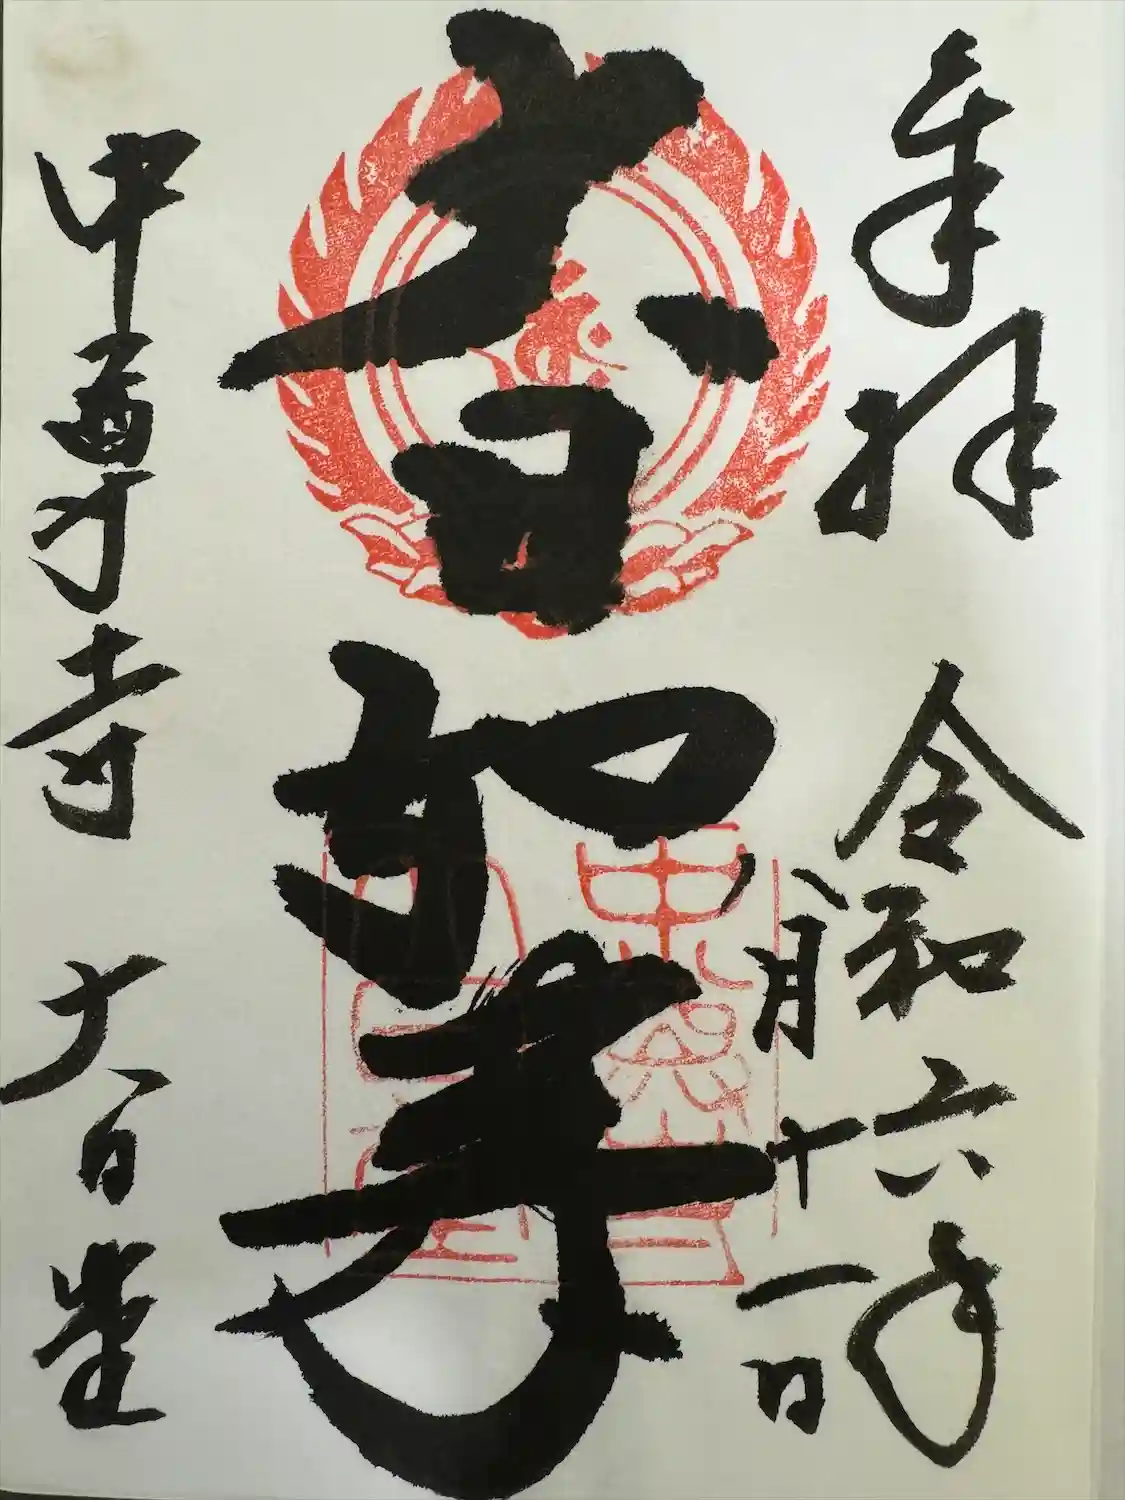 奉拝 令和六年
八月十一日
大日如来
中尊寺 大日堂